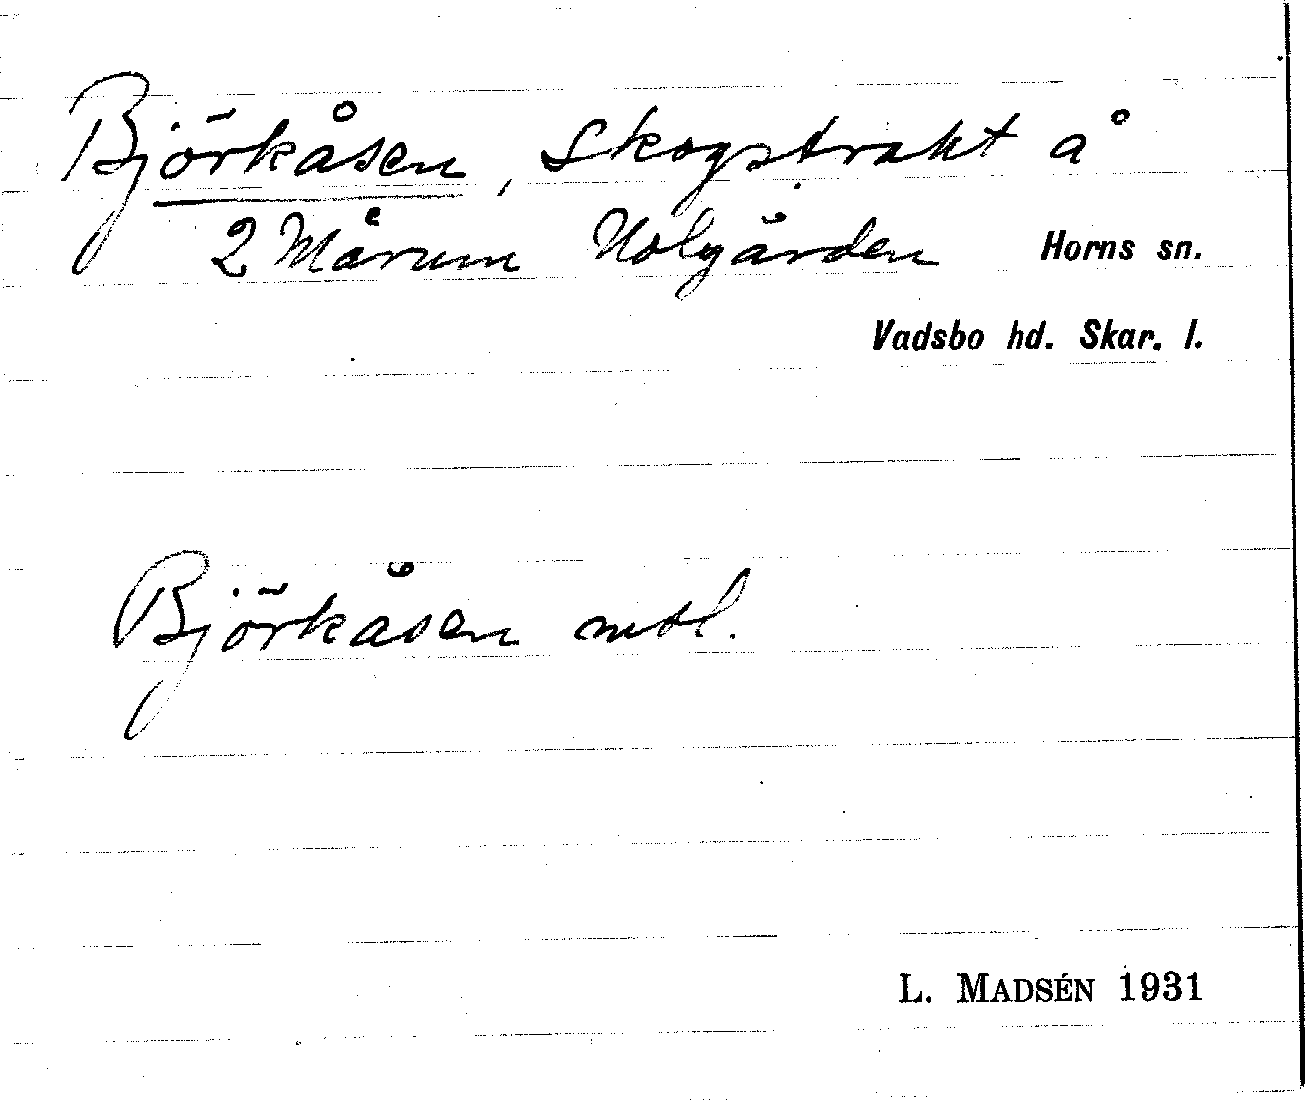 Björkåsen, Skogstrakt å
2 Mårum Holgården Horns sn.
Vadsbo hd. Skar. l.
Björkåsen mtl.
L. MADSÉN 1931